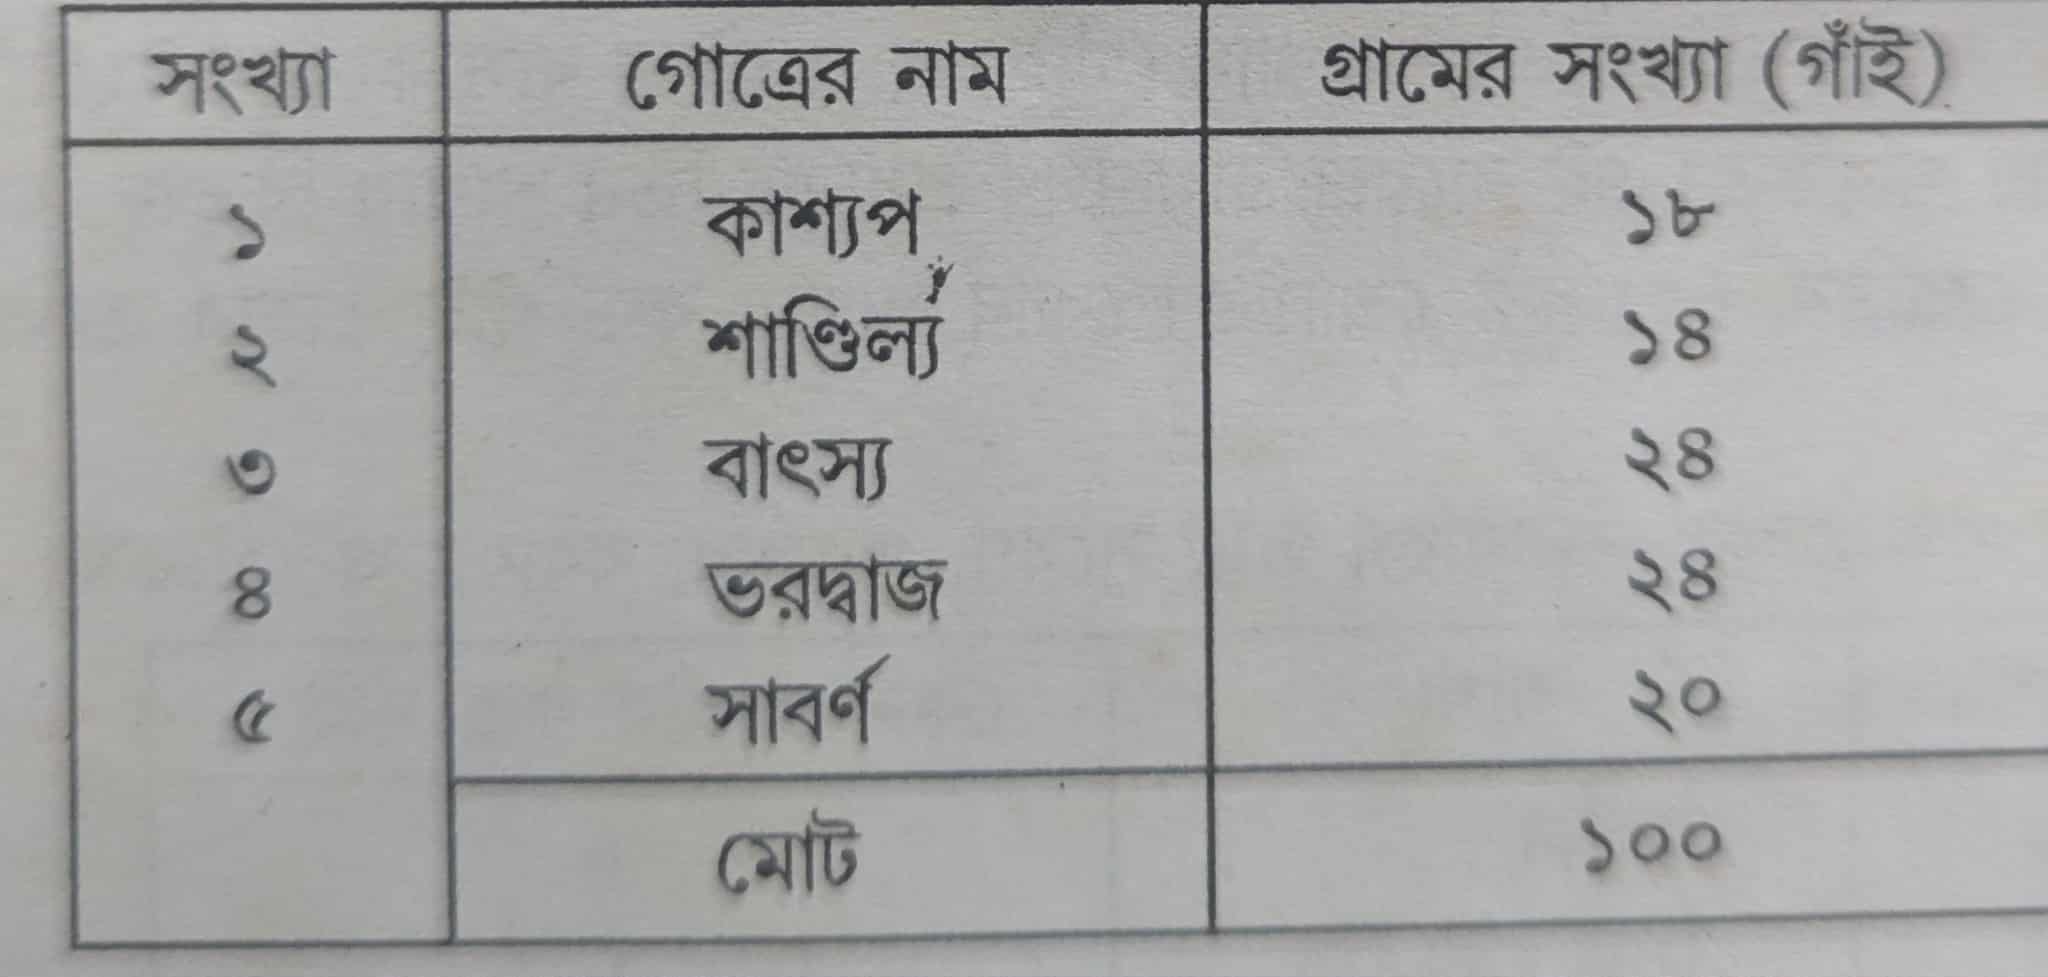 সংখ্যা গোত্রের নাম গ্রামের সংখ্যা (গাঁই)
১ কাশ্যপ ১৮
২ শাণ্ডিল্য ১৪
৩ বাৎস্য ২৪
৪ ভরদ্বাজ ২৪
৫ সাবর্ণ ২০
মোট ১০০